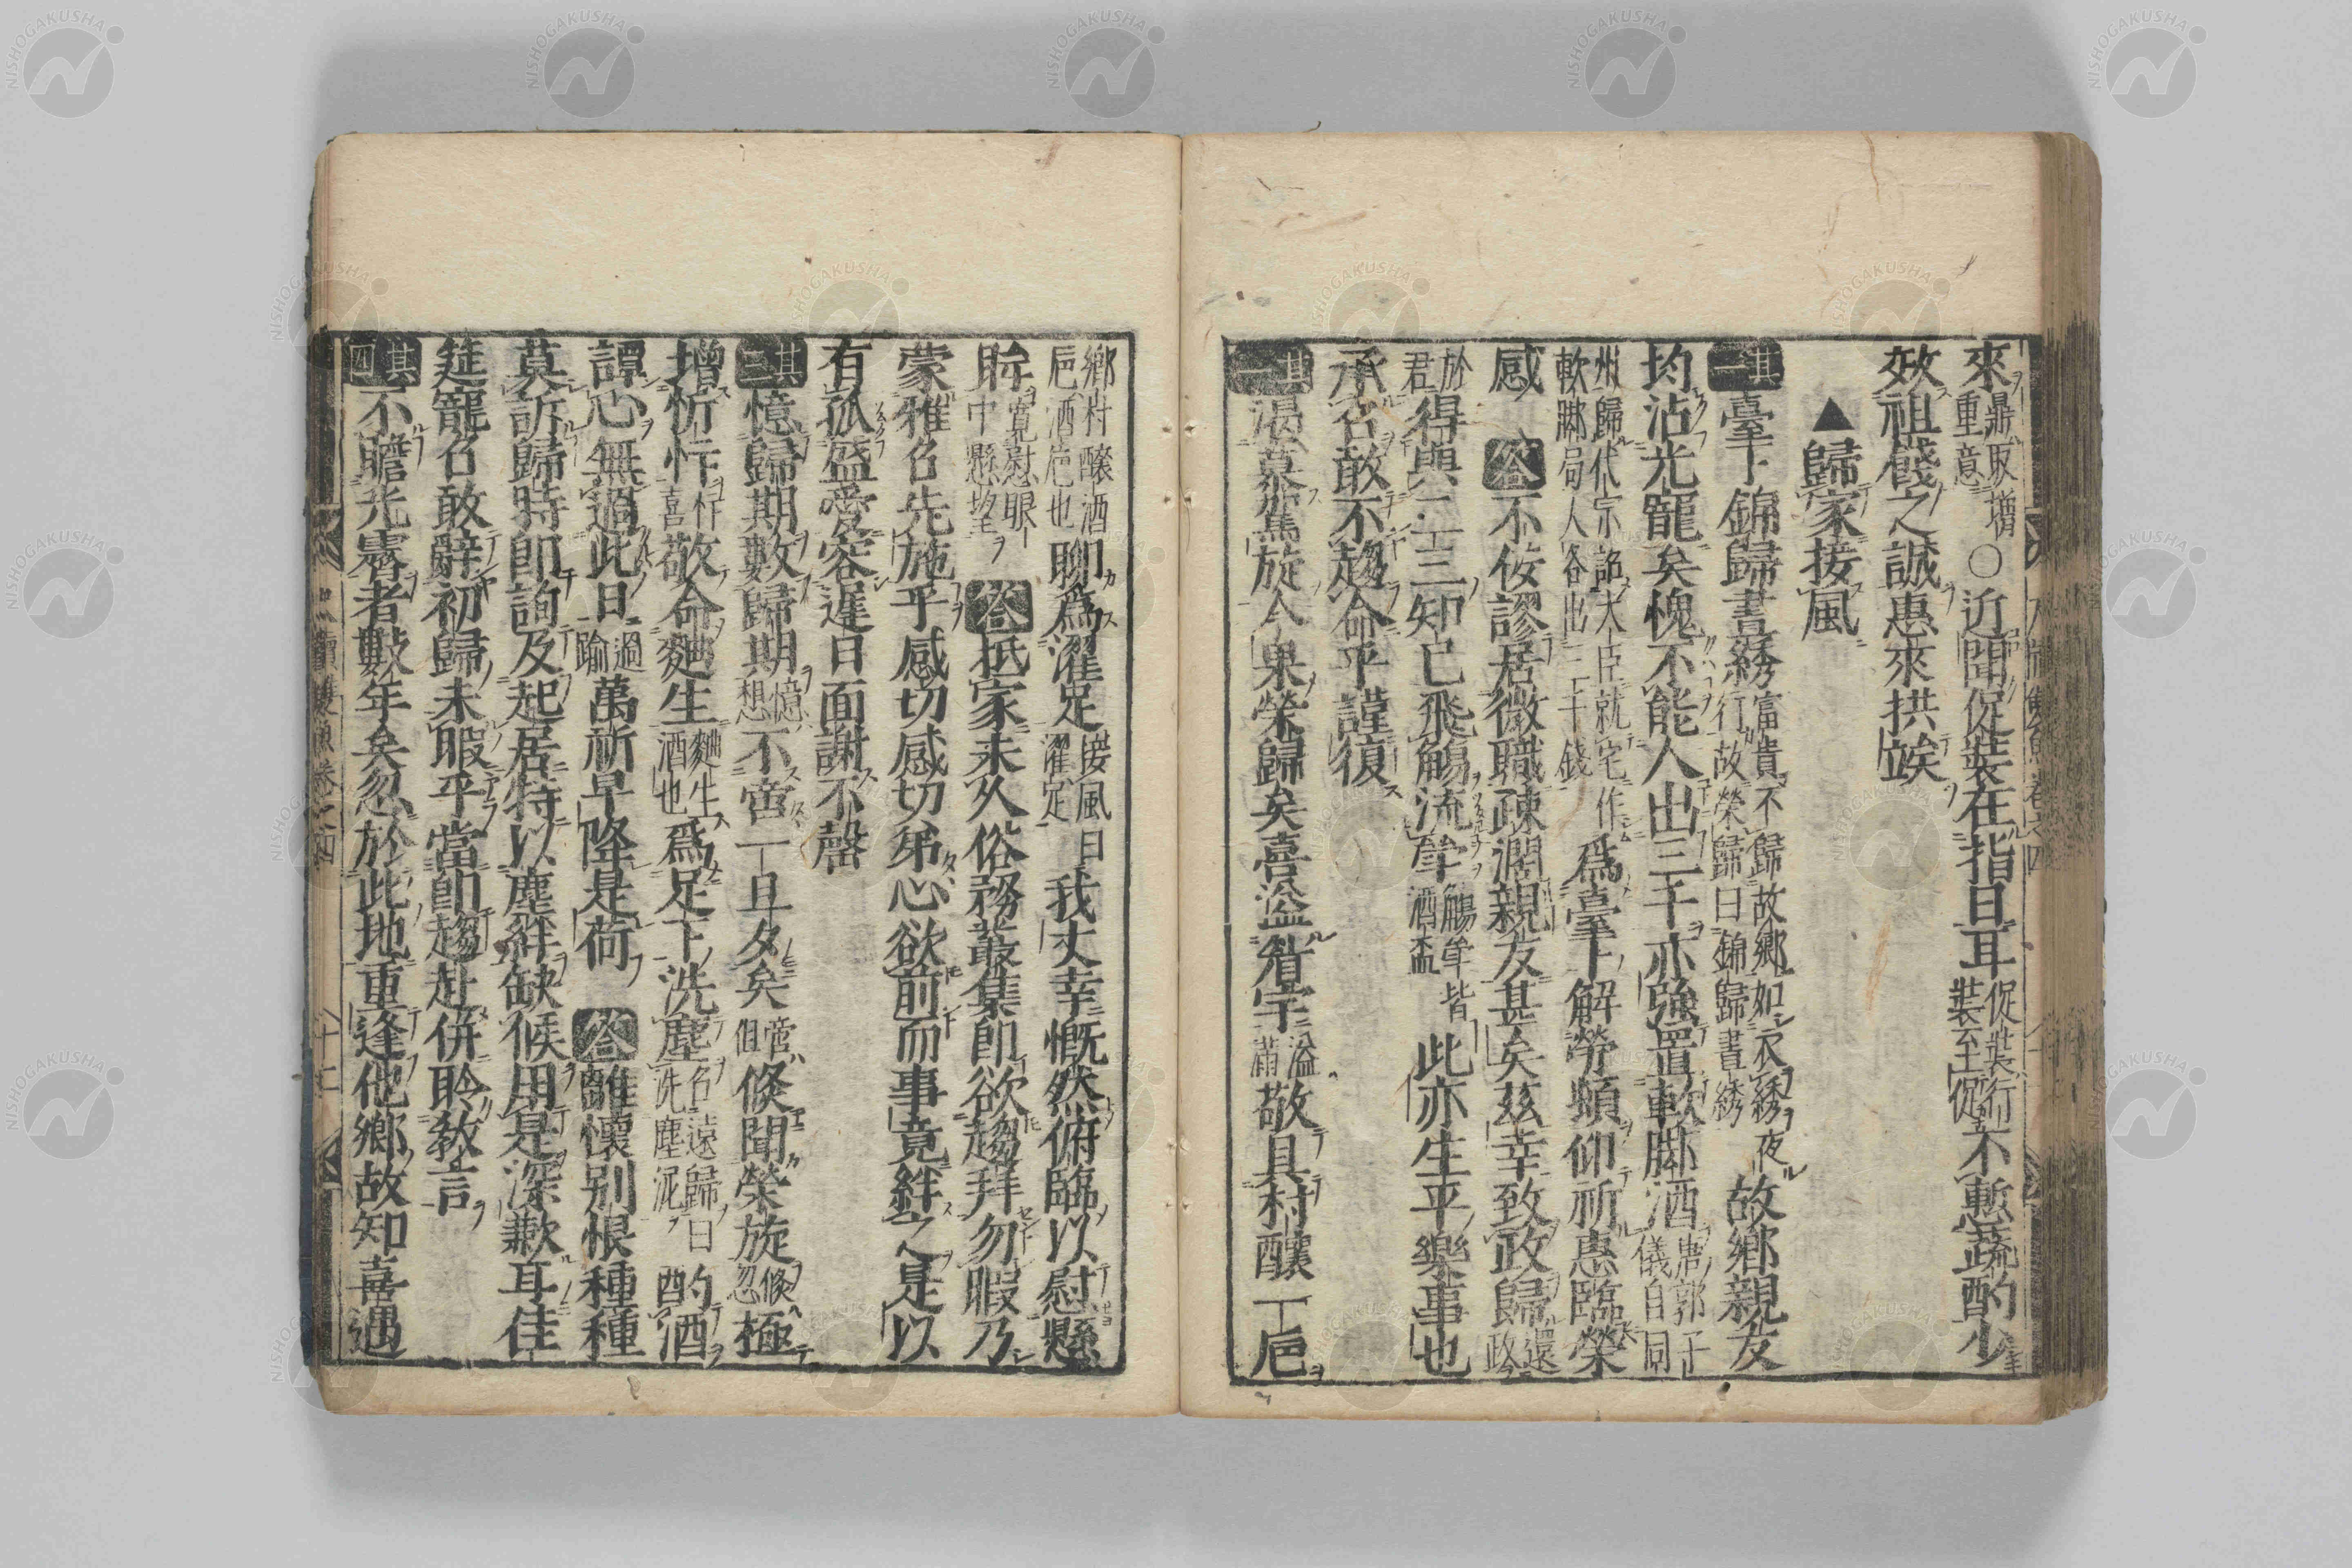 來鼎取增重意○近聞促裝在指日耳促裝行裝至促不慙蔬酌少
效祖餞之誠惠來拱竢
▲歸家接風
其一臺下錦歸晝綉富貴不歸故鄉如衣綉夜行故榮歸曰錦歸晝綉故鄉親友
均沾光寵矣愧不能人出三千亦強置軟脚酒唐郭子儀自同
州歸代宗詔大臣就宅作軟脚局人各出三千錢為臺下解勞頻仰祈惠臨榮
感 答不佞謬居微職疎濶親友甚矣茲幸致政歸還政
於君得與二三知己飛觴流牟觴牟皆酒盃此亦生平樂事也
承召敢不趨命乎謹復
其二渴慕駕旋今果榮歸矣喜溢眉宇溢滿敬具村釀一巵
鄉村釀酒巵酒巵也聊為濯足接風曰濯足我丈幸慨然俯臨以慰懸
眸寬慰眼中懸望 答抵家未久俗務叢集即欲趨拜勿暇乃
蒙雅召先施乎感切感切弟心欲前而事竟絆之是以
有孤盛愛容遲日面謝不罄
其三憶歸期數歸期憶想不啻一旦夕矣啻但倏聞榮旋倏忽極
增忻忭忭喜敬命麯生麯生酒也為足下洗塵名遠歸曰洗塵泥酌酒
譚心無過此日過踰萬祈早降是荷 答離懷别恨種種
莫訴歸時即詢及起居特以塵絆缺候用是深歉耳佳
筵寵召敢辭初歸未暇乎當即趨赴併聆敎言
其四不瞻光霽者數年矣忽於此地重逢他鄉故知喜遇